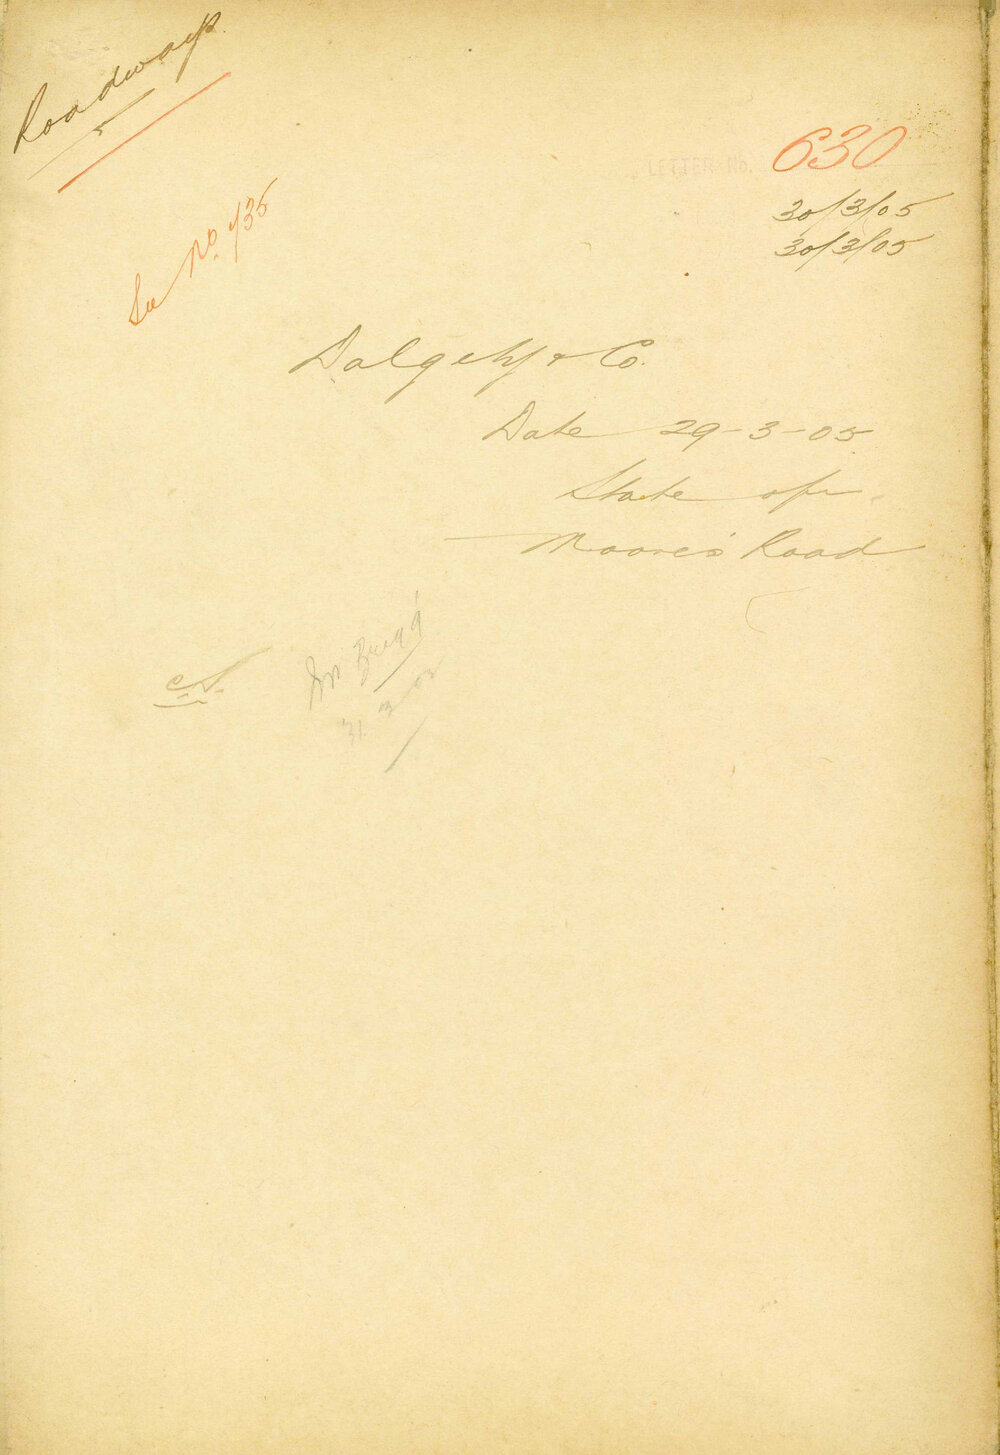 Roadways
LETTER No. 630
30/3/05
30/3/05
See No. 735
Dalgety & Co.
Date 29-3-05
State of
Moore's Road
Mr Bragg
31 3 05